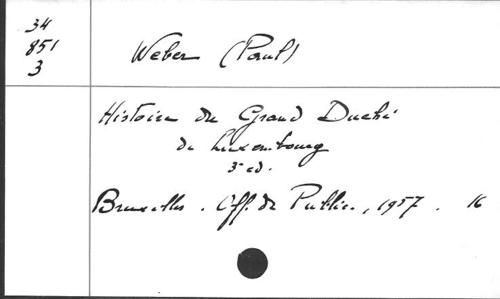 34
851
3
Weber (Paul)
Histoire du Grand Duché
de Luxembourg
3e ed.
Bruxelles. Off. de Public., 1957. 16